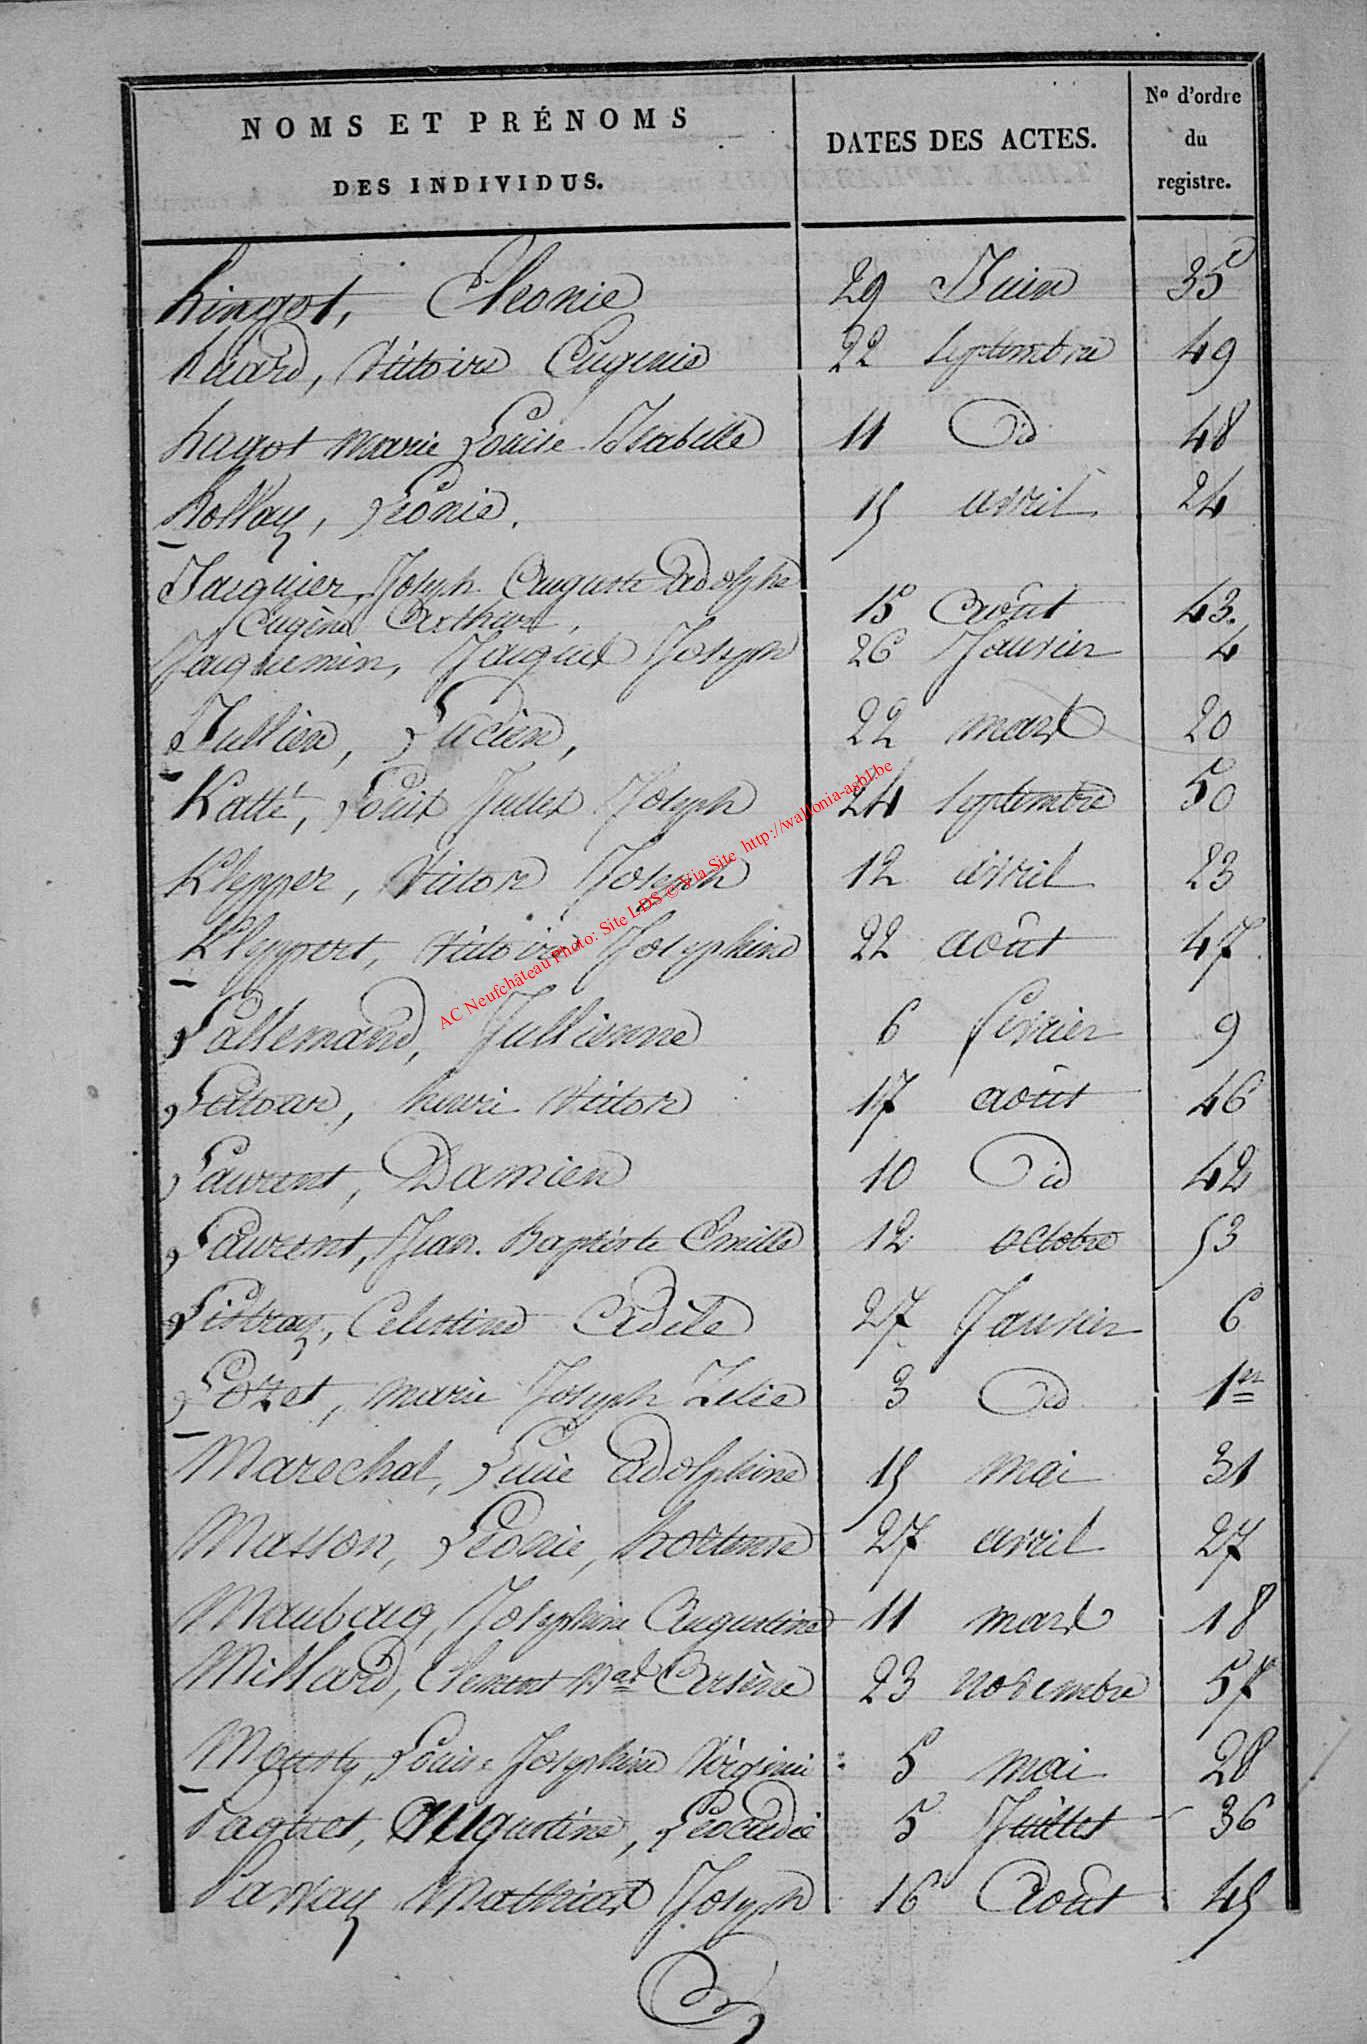 NOMS ET PRÉNOMS
DES INDIVIDUS.
DATES DES ACTES.
No d'ordre
du
registre.
hingot, Cleonie 29 Juin 35
huard, Victoire Eugenie 22 septembre 49
hugot marie Louise Isabelle 11 Id 48
hollay, Léonie. 15 avril 24
Jacquier, Joseph Auguste Adolphe
Eugène Arthur, 15 août 43.
Jacquemin, Jacques Joseph 26 Janvier 4
Jullien, Lucien, 22 mars 20
Katté, Louis Jules Joseph 24 septembre 50
Klepper, Victor Joseph 12 avril 23
Kleppert, Victoire Josephine 22 août 47
Lallemand, Jullienne 6 fevrier 9
henri Victor 17 août 46
Laurent, Damien 10 Id 42
Laurent, Jean Baptiste Emille 12 octobre 53
Celestine Adèle 27 Janvier 6
Lozet, marie Joseph Zelie 3 Id 1er
Marechal, Lucie Adolphine 15 mai 31
Masson, Léonie, hortense 27 avril 27
Josephine Augustine 11 mars 18
Millard, Clement Arsène 23 novembre 57
Mousty, Louise Josephine Virginie 5 mai 28
Paquet, Augustine, Léocadie 5 Juillet 36
Mathias Joseph 16 Août 45
AC Neufchâteau Photo: Site LDS © Via Site http://wallonia-asbl.be